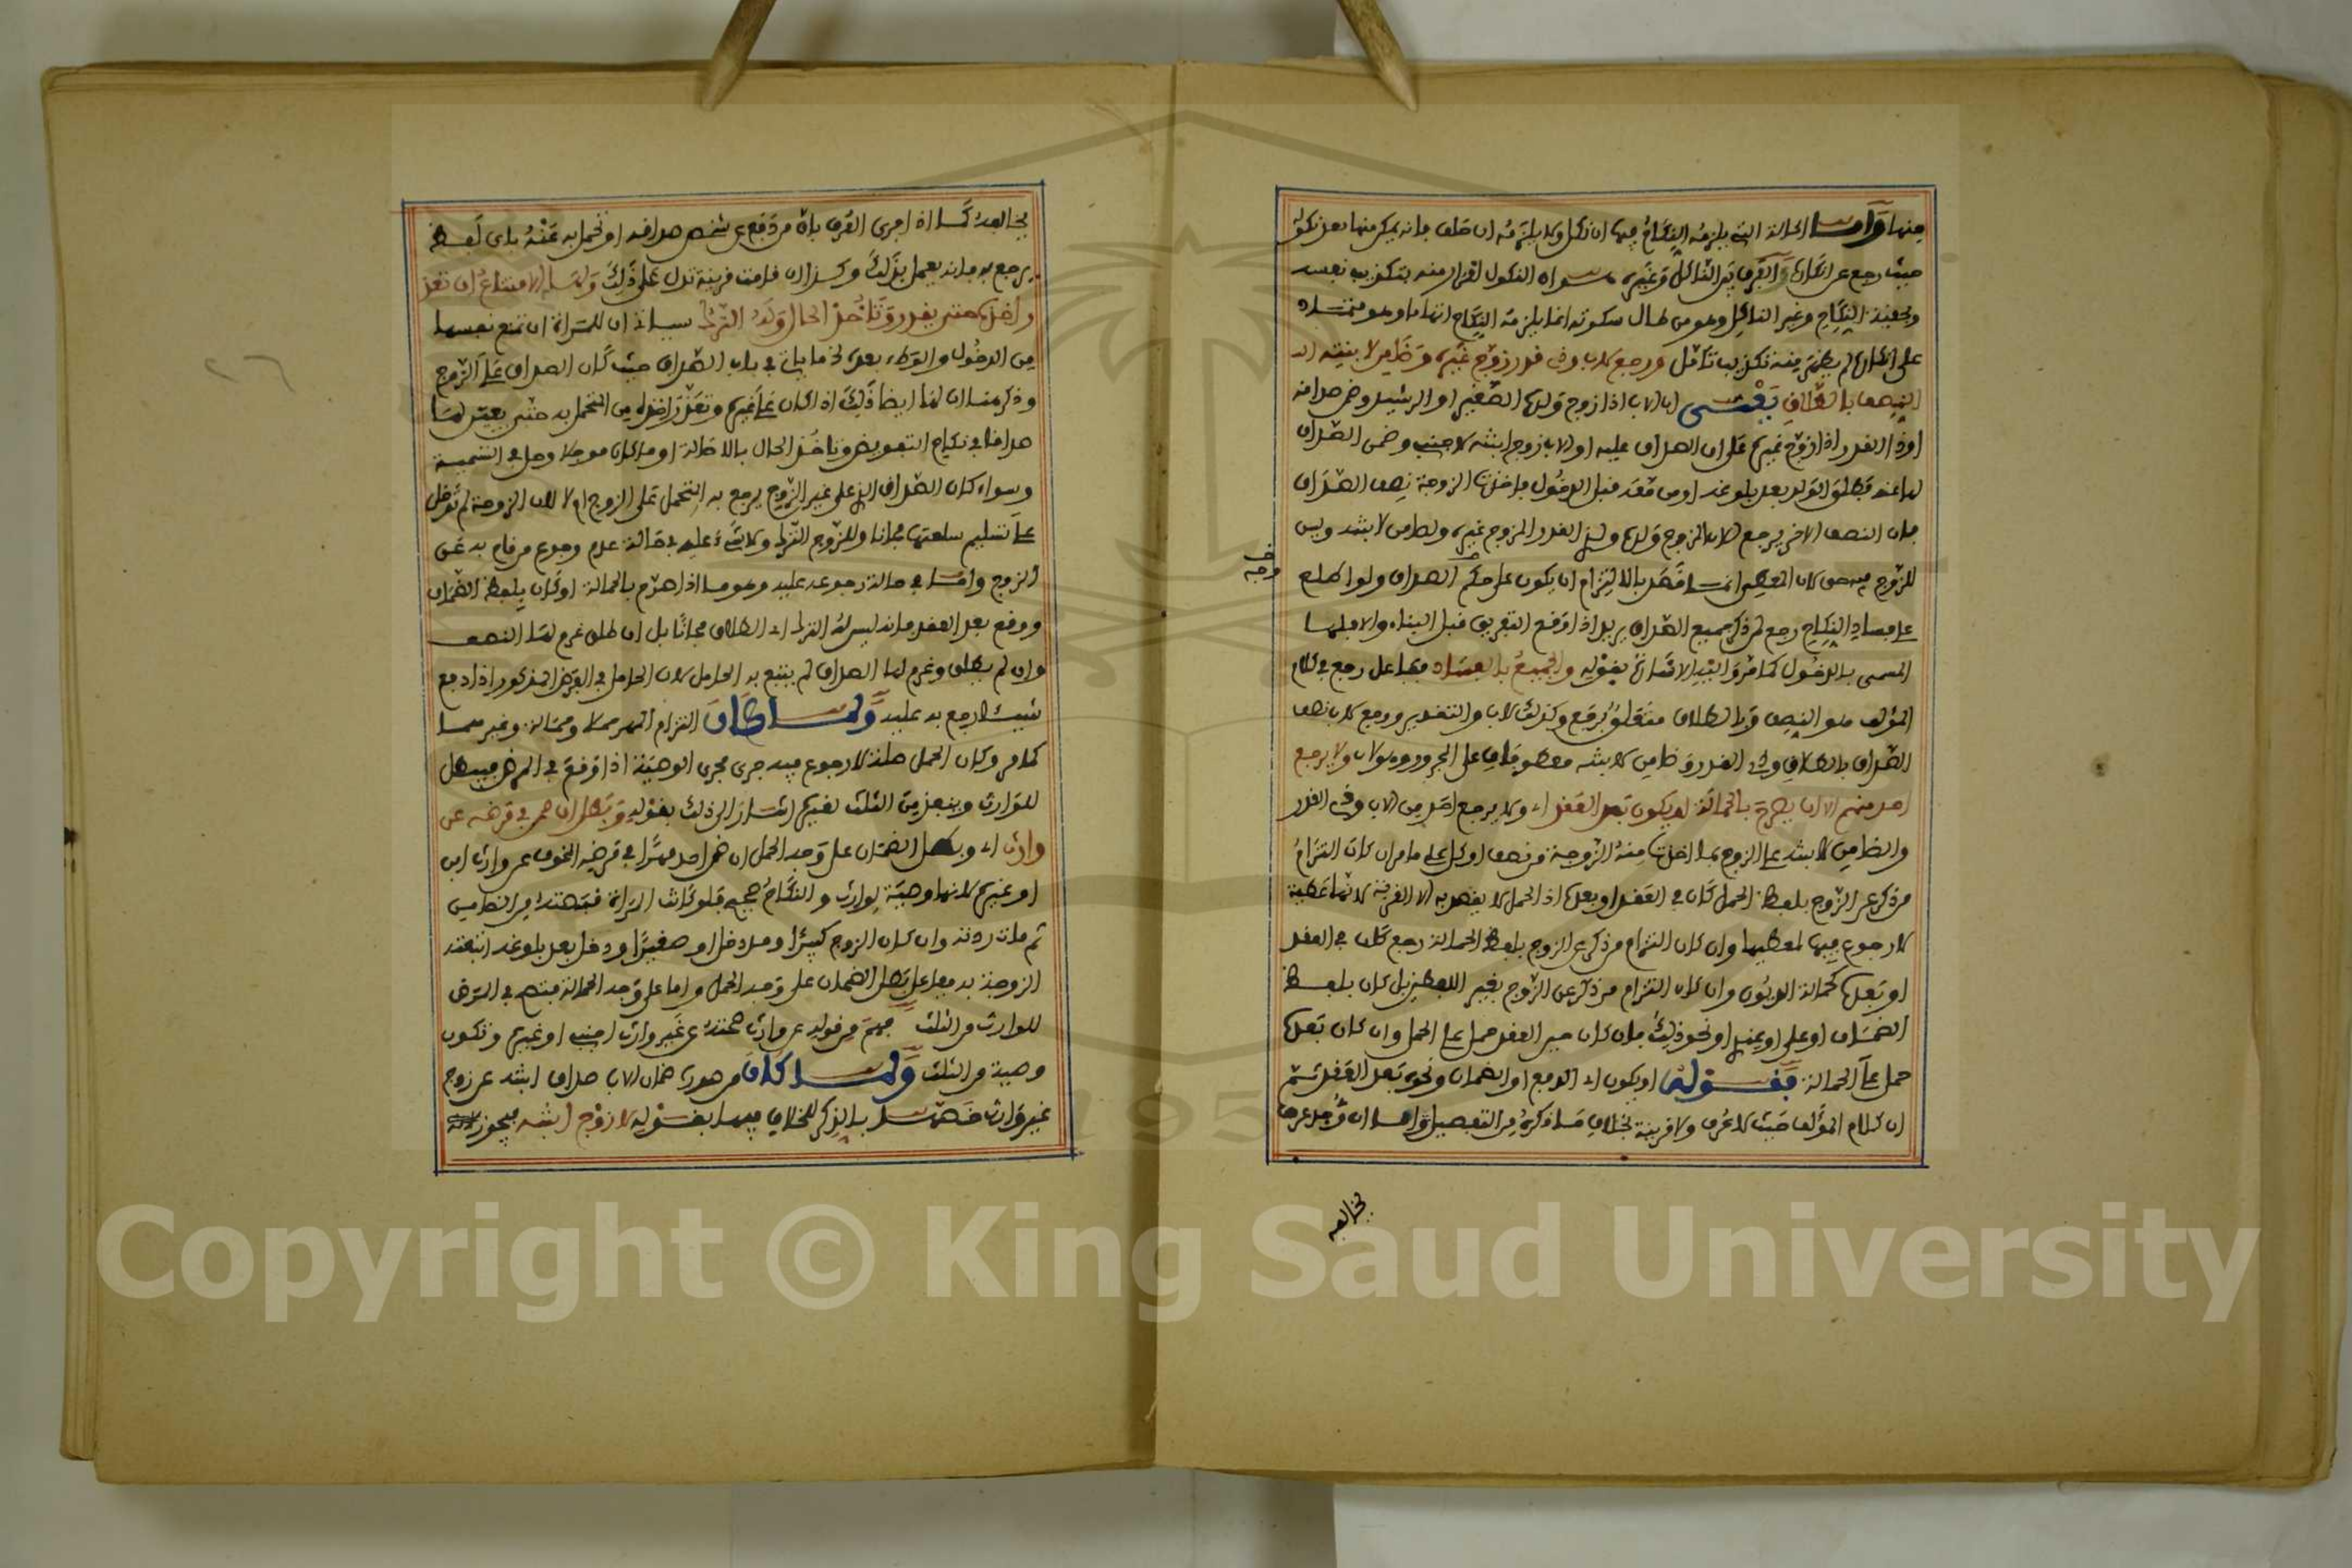 منها وأما الحالة التي يلزمه النكاح فيها ان نكل ولا يلزمه ان حلف فانه يمكن منها بعد نكوله
حيث رجع عن انكاره والفرق بين الناكل وغيره سواه النكول اقرار منه بتكذيب نفسه
وبحقية النكاح وغير الناكل وهو من طال سكوته انما يلزمه النكاح اتهاما وهو متماد
على انكاره لم يظهر منه تكذيب تامل ورجع لاب وذي قدر زوج غيره وضامن لابنته الـ
النصف بالطلاق يعني ان الاب اذا زوج ولده الصغير او الرشيد وضمن صداقه
او ذا القدر اذا زوج غيره على ان الصداق عليه او الاب زوج ابنته لاجنبي وضمن الصداق
لها عنه فطلق الولد بعد بلوغه او من معه قبل الدخول فاخذت الزوجة نصف الصداق
فان النصف الاخر يرجع للاب المزوج ولده ولذي القدر المزوج غيره ولضامن لابنته وليس
للزوج فيه حق لان المعطي انما قصد بالالتزام ان يكون على حكم الصداق ولو اطلع
على فساد النكاح رجع لمن ذكر جميع الصداق يريد اذا وقع التفريق قبل البناء والا فلها
المسمى بالدخول كما مر واليه الاشارة بقوله والجميع بالفساد ففاعل رجع في كلام
المؤلف هو النصف وبالطلاق متعلق برجع وكذلك لاب والتقدير ورجع لاب نصف
الصداق بالطلاق وذي القدر وضامن لابنته معطوفان على المجرور وهو لاب ولا يرجع
احد منهم الا ان يصرح بالحمالة او يكون بعد العقد اي ولا يرجع احد من الاب وذي القدر
والضامن لابنته على الزوج بما اخذت منه الزوجة من نصف او كل على ما مر ان كان التزام
من ذكر عن الزوج بلفظ الحمل كان في العقد او بعده اذ الحمل لا يقصد به الا القربة لانها عطية
لا رجوع فيها لمعطيها وان كان التزام من ذكر عن الزوج بلفظ الحمالة رجع كان في العقد
او بعده كحمالة الديون وان كان التزام من ذكر عن الزوج بغير اللفظين بل كان بلفظ
الضمان او علي او عندي او نحو ذلك فان كان حين العقد حمل على الحمل وان كان بعده
حمل على الحمالة فقوله او يكون اي الدفع او الضمان ونحوه بعد العقد ثم
ان كلام المؤلف حيث لا عرف ولا قرينة بخلاف ما ذكره من التفصيل واما ان وجد عرف
وجه
يخالفه
يخالفه كما اذا جرى العرف بان من دفع عن شخص صداقه او تحمل به عنه باي لفظ
يرجع به فانه يعمل بذلك وكذا ان قامت قرينة تدل على ذلك ولها الامتناع ان تعذر
اخذه حتى يقدر وتاخذ الحال وله الترك سياتي ان للمراة ان تمنع نفسها
من الدخول والوطء بعده لخ ما ياتي في باب الصداق حيث كان الصداق على الزوج
وذكر هنا ان لها ايضا ذلك اذا كان على غيره وتعذر اخذه من المتحمل به حتى يعين لها
صداقا في نكاح التفويض وتاخذ الحال بالاصالة او ما كان موجلا وحل في التسمية
وسواء كان الصداق الذي على غير الزوج يرجع به المتحمل على الزوج ام لا لان الزوجة لم تدخل
على تسليم سلعتها مجانا وللزوج الترك ولا شيء عليه في حالة عدم رجوع من قام به عن
الزوج واما في حالة رجوعه عليه وهو ما اذا صرح بالحمالة او كان بلفظ الضمان
ووقع بعد العقد فانه ليس له الترك اي الطلاق مجانا بل ان طلق غرم لها النصف
وان لم يطلق وغرم لها الصداق لم يتبع به الحامل لان الحامل في الفرض المذكور اذا دفع
شيئا لا يرجع به عليه ولما كان التزام المهر حملا وحمالة وغيرهما
كما مر وكان الحمل صلة لا رجوع فيه جرى مجرى الوصية اذا وقع في المرض فيبطل
للوارث وينفذ من الثلث لغيره اشار الى ذلك بقوله وبطل ان ضمن في مرضه عن
وارث اي وبطل الضمان على وجه الحمل ان ضمن احد مهرا في مرضه المخوف عن وارث ابن
او غيره لانها وصية لوارث والنكاح صحيح فلو كانت المراة قبضته من الضامن
ثم مات ردته وان كان الزوج كبيرا وقد دخل او صغيرا ودخل بعد بلوغه اتبعته
الزوجة به ففاعل بطل الضمان على وجه الحمل واما على وجه الحمالة فتصح في المرض
للوارث من الثلث فهم من قوله عن وارث صحته عن غير وارث اجنبي او غيره وتكون
وصية من الثلث ولما كان من صور ضمان الاب صداق ابنته عن زوج
غير وارث خصها بالذكر للخلاف فيها بقوله لا زوج ابنته فيجوز لانه